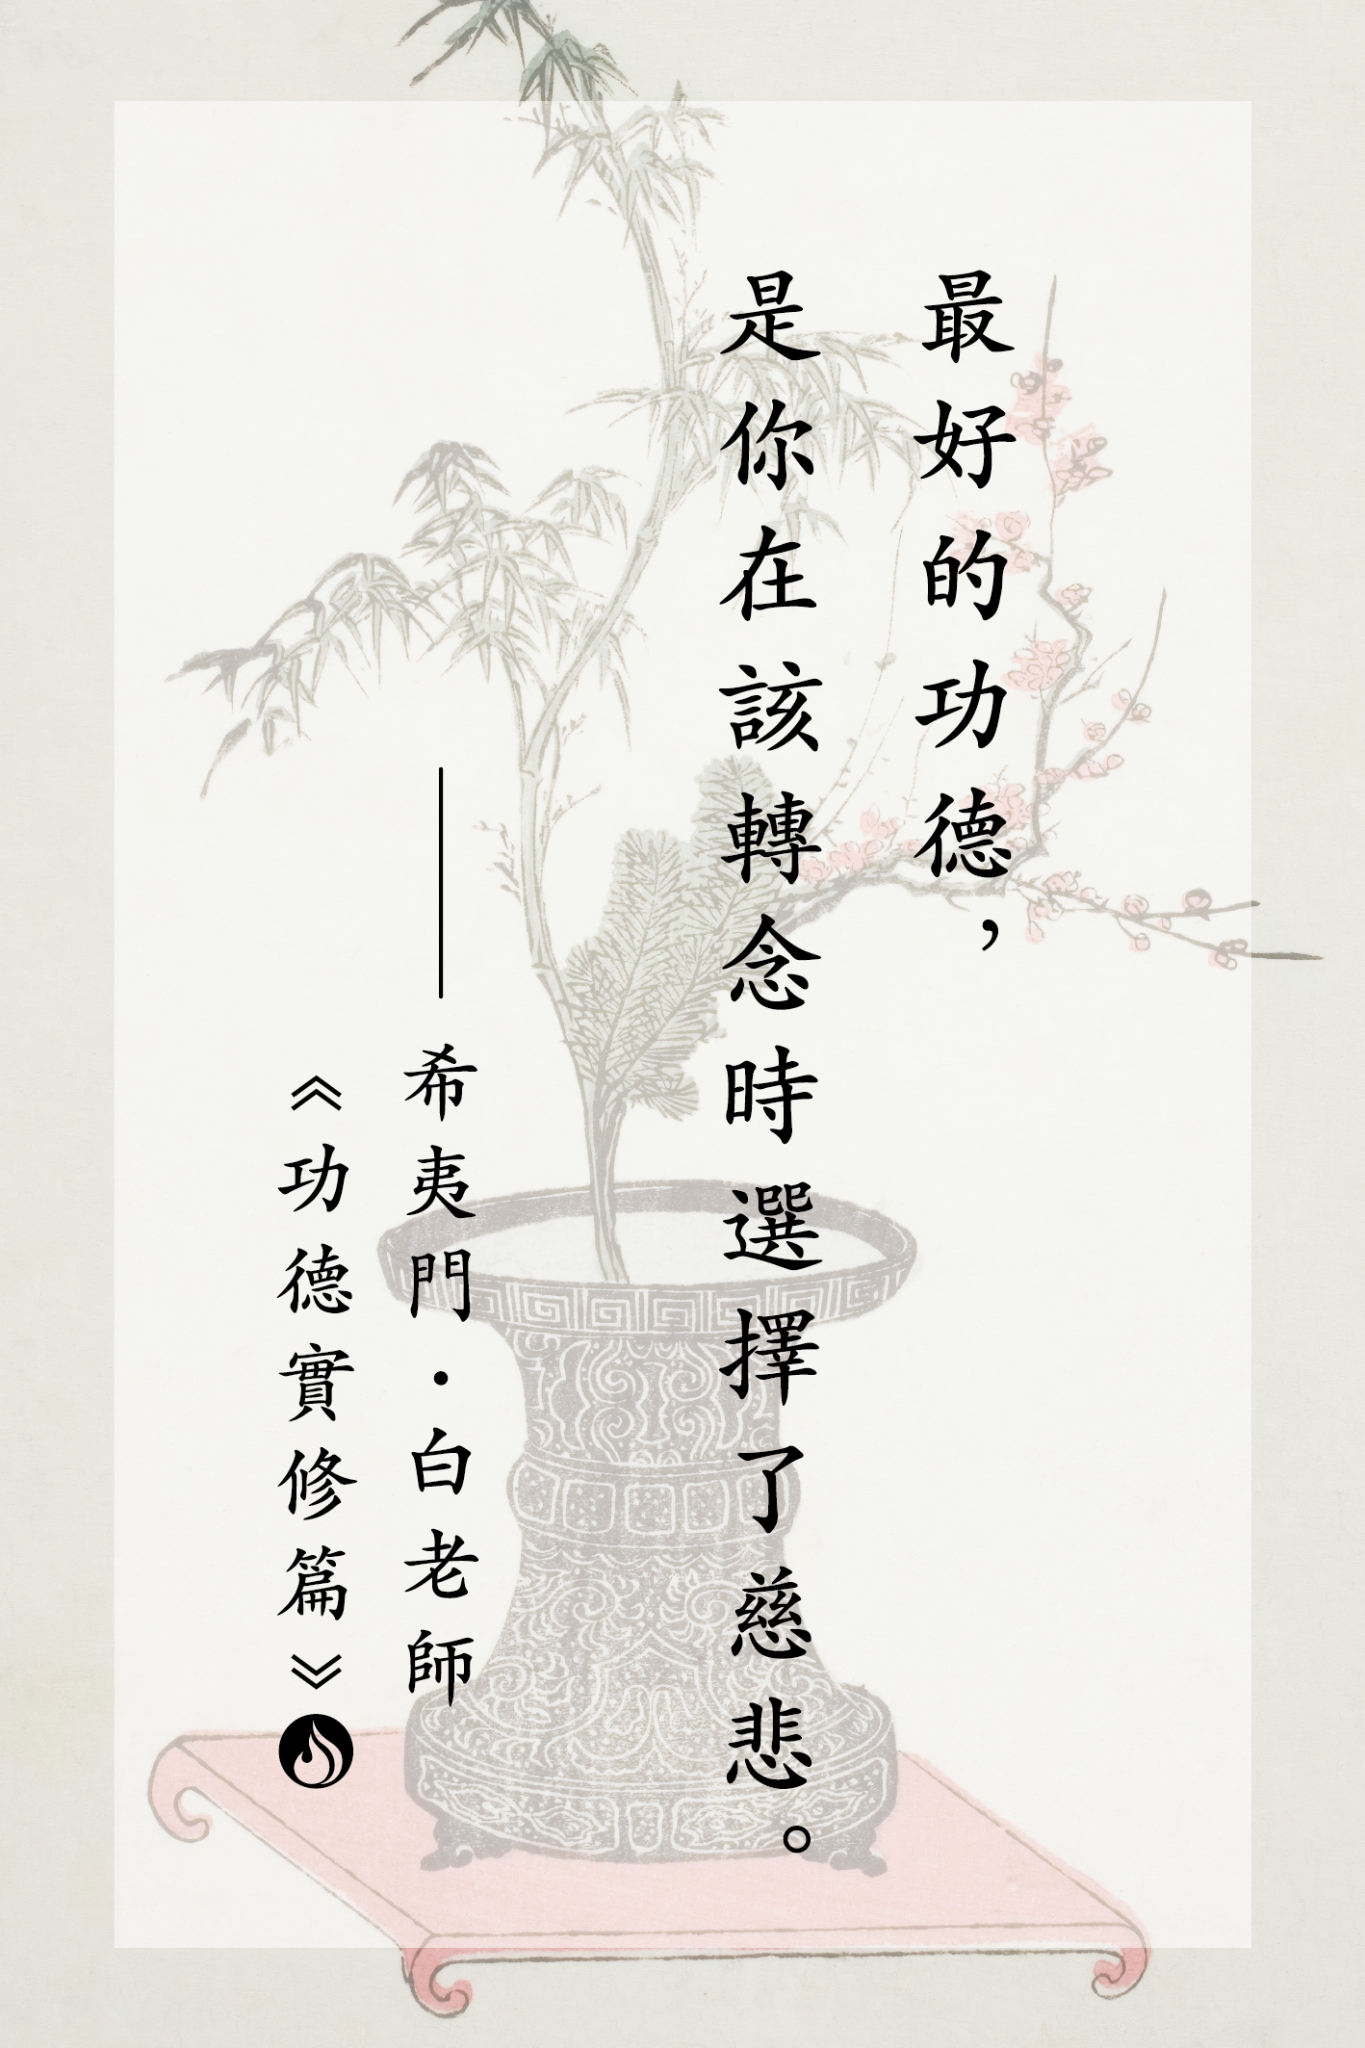 最好的功德，
是你在該轉念時選擇了慈悲。
——希夷門・白老師
《功德實修篇》